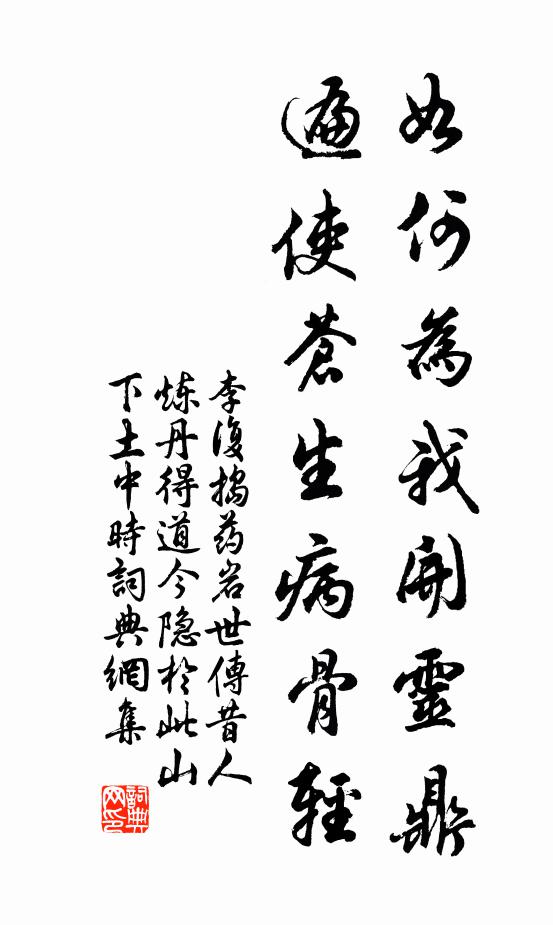 如何為我開靈鼎
遍使蒼生病骨輕
李復搗药岩世傳昔人
炼丹得道今隐於此山
下土中時詞典網集
詞典网印